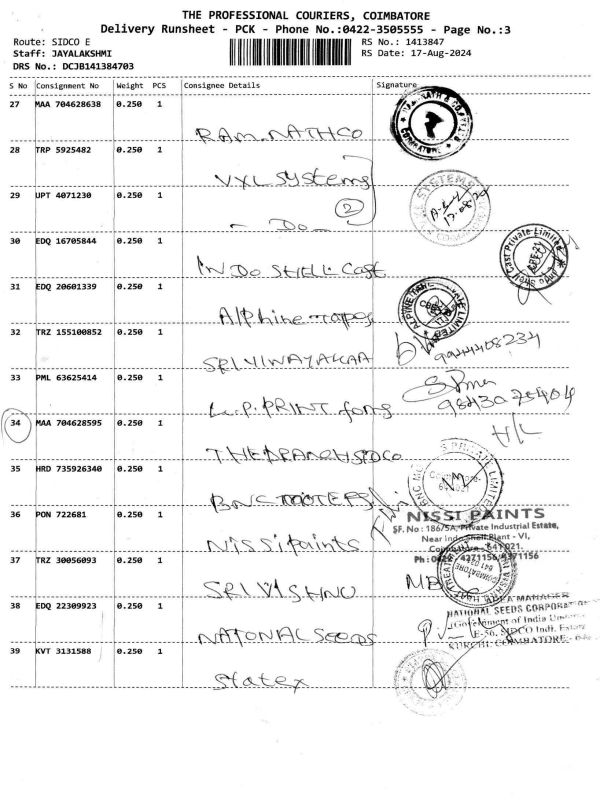 THE PROFESSIONAL COURIERS, COIMBATORE
Delivery Runsheet - PCK - Phone No.:0422-3505555 - Page No.:3
Route: SIDCO E
RS No.: 1413847
Staff: JAYALAKSHMI
RS Date: 17-Aug-2024
DRS No.: DCJB141384703
S No Consignment No Weight PCS Consignee Details Signature
27 MAA 704628638 0.250 1
RAMNATHCO
28 TRP 5925482 0.250 1
VXL systems
29 UPT 4071230 0.250 1
2
- Do -
30 EDQ 16705844 0.250 1
INDO SHELL Cast
31 EDQ 20601339 0.250 1
Alphine Tapes
32 TRZ 155100852 0.250 1
SRI VINAYAKAA
9944408234
33 PML 63625414 0.250 1
PRINT
34 MAA 704628595 0.250 1
THE BRANCH SIDCO
35 HRD 735926340 0.250 1
BNC
36 PON 722681 0.250 1
Nissi paints
NISSI PAINTS
SF. No : 186/5A, Private Industrial Estate,
Near Indo Shell Plant - VI,
Coimbatore - 641 021.
37 TRZ 30056093 0.250 1
SRI VISHNU
38 EDQ 22309923 0.250 1
NATONAL SEEDS
AREA MANAGER
NATIONAL SEEDS CORPORATION
(Government of India
E-56, SIDCO Indl. Estate
KURCHI, COIMBATORE-
39 KVT 3131588 0.250 1
Statex